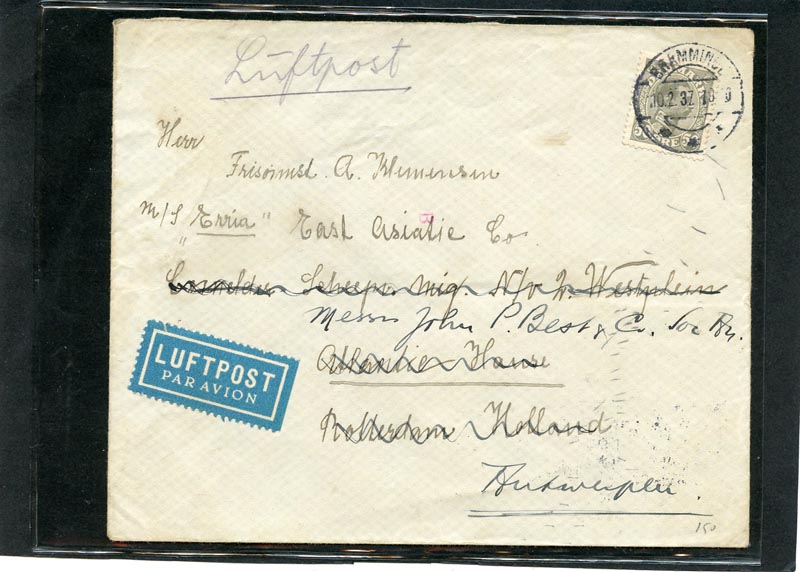 Luftpost
BRAMMINGE
10.2.37. 18-
ØRE
Herr
A. Klemensen
M/S "Erria" East Asiatic Co.
Scheeps. Mig. N/v 2. Westplein
Messrs John P. Best & Co. Soc An.
Atlantic House
LUFTPOST
PAR AVION
Rotterdam Holland
Antwerpen.
150